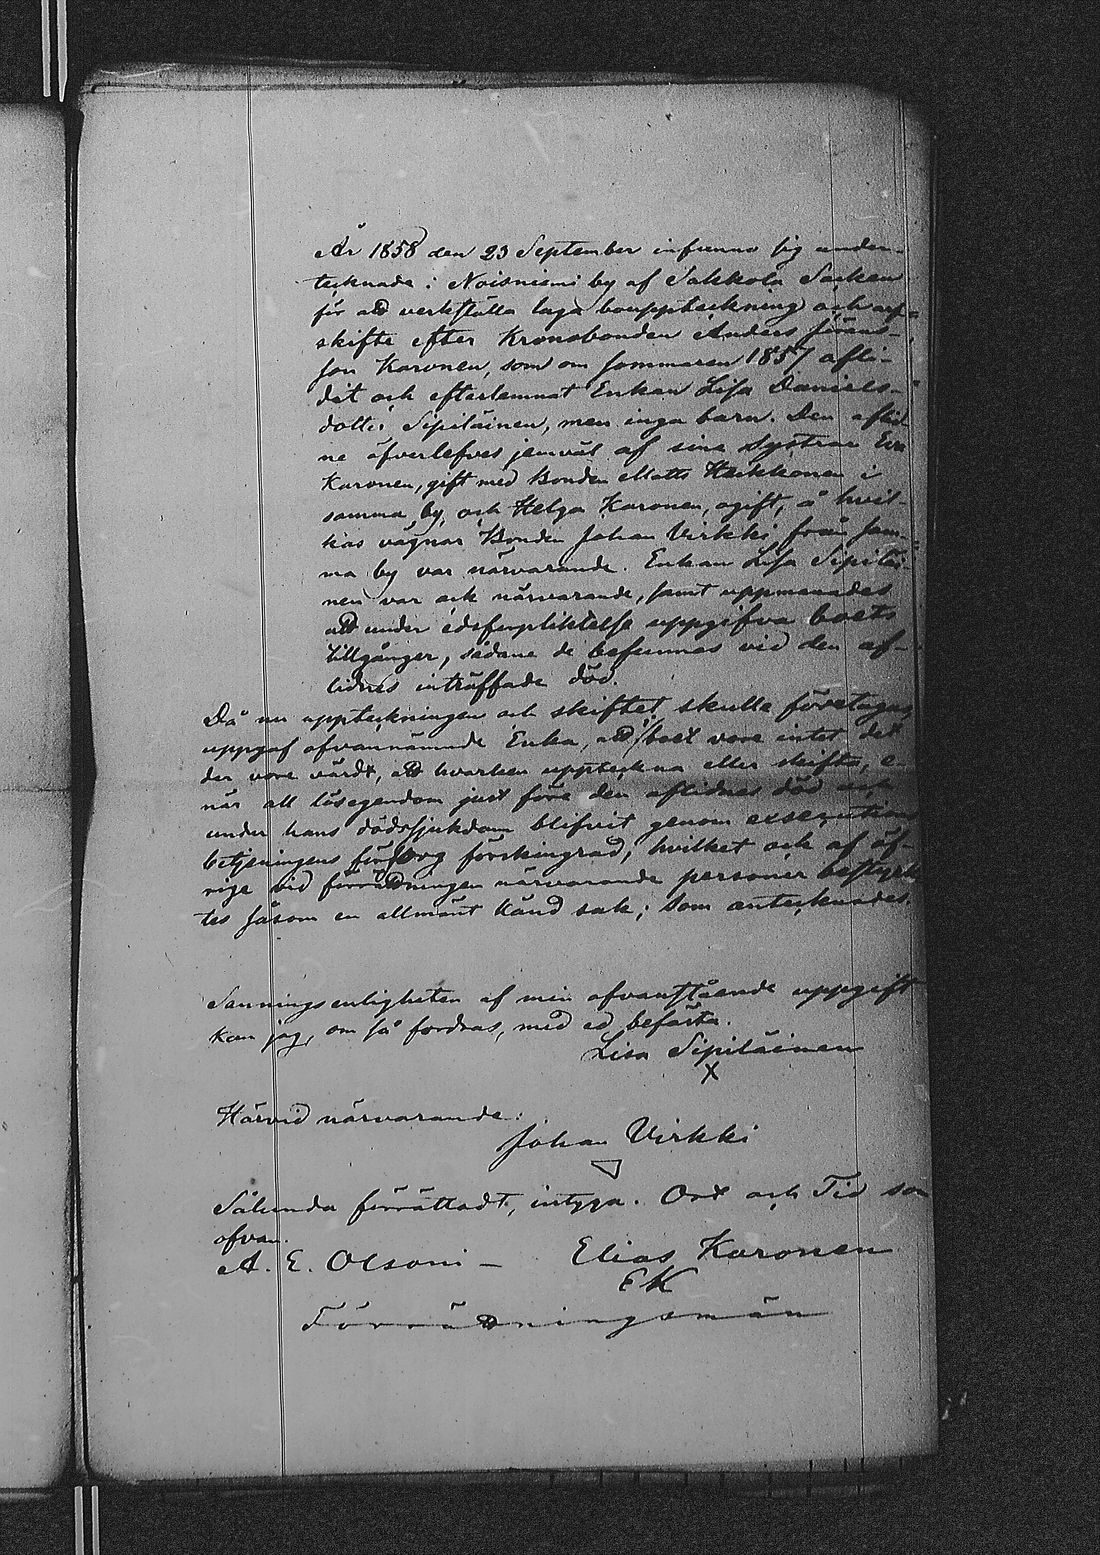 År 1858 den 23 September infunno sig under-
tecknade i Noisniemi by af Sakkola Socken
för att verkställa laga bouppteckning och arf-
skifte efter Kronobonden Anders Jörans-
son Karonen, som om sommaren 1857 afli-
dit och efterlemnat Enkan Lisa Daniels-
dotter Sipiläinen, men inga barn. Den aflid
ne öfverlefves jemväl af sine Systrar Eva
Karonen, gift med Bonden Matts Heikkonen i
samma by, och Helga Karonen, ogift, å hvil-
kas vägnar Bonden Johan Virkki från sam-
ma by var närvarande. Enkan Lisa Sipiläi-
nen var ock närvarande, samt uppmanades
att under edsförpliktelse uppgifva boets
tillgånger, sådane de befunnes vid den af-
lidnes inträffade död.
Då nu uppteckningen och skiftet skulle företagas,
uppgaf ofvannämnde Enka, att i boet vore intet det
der vore värdt, att hvarken uppteckna eller skifta, e-
när all lösegendom just före den aflidnes död och
under hans dödssjukdom blifvit genom exsecutions
betjeningens försorg förskingrad, hvilket ock af öf-
rige vid förrättningen närvarande personer bestyrk
tes såsom en allmänt känd sak; som antecknades.
Sanningsenligheten af min ofvanstående uppgift
kan jag, om så fordras, med ed befästa.
Lisa Sipiläinen
X
Härvid närvarande:
Johan Virkki
Sålunda förrättadt, intyga. Ort och Tid som
ofvan.
A. E. Olsoni – Elias Karonen
EK
Förrättningsmän